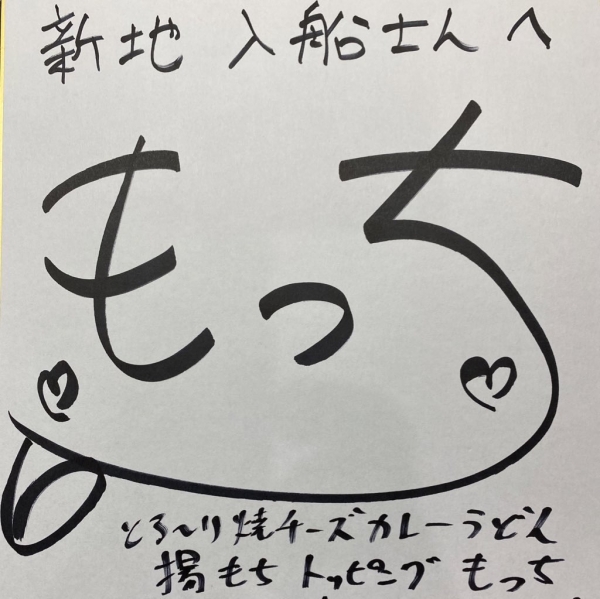 新地 入船士んへ
もっち
とろ〜り焼チーズカレーうどん
揚もちトッピング もっち